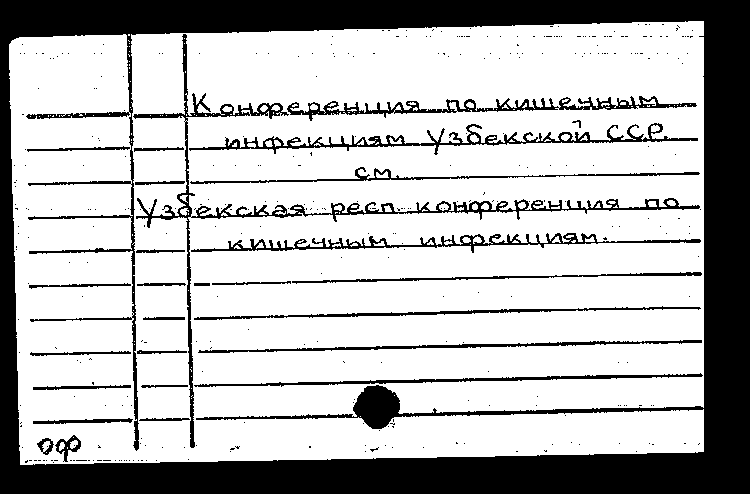 Конференция по кишечным
инфекциям Узбекской ССР.
см.
Узбекская респ. конференция по
кишечным инфекциям.
оф